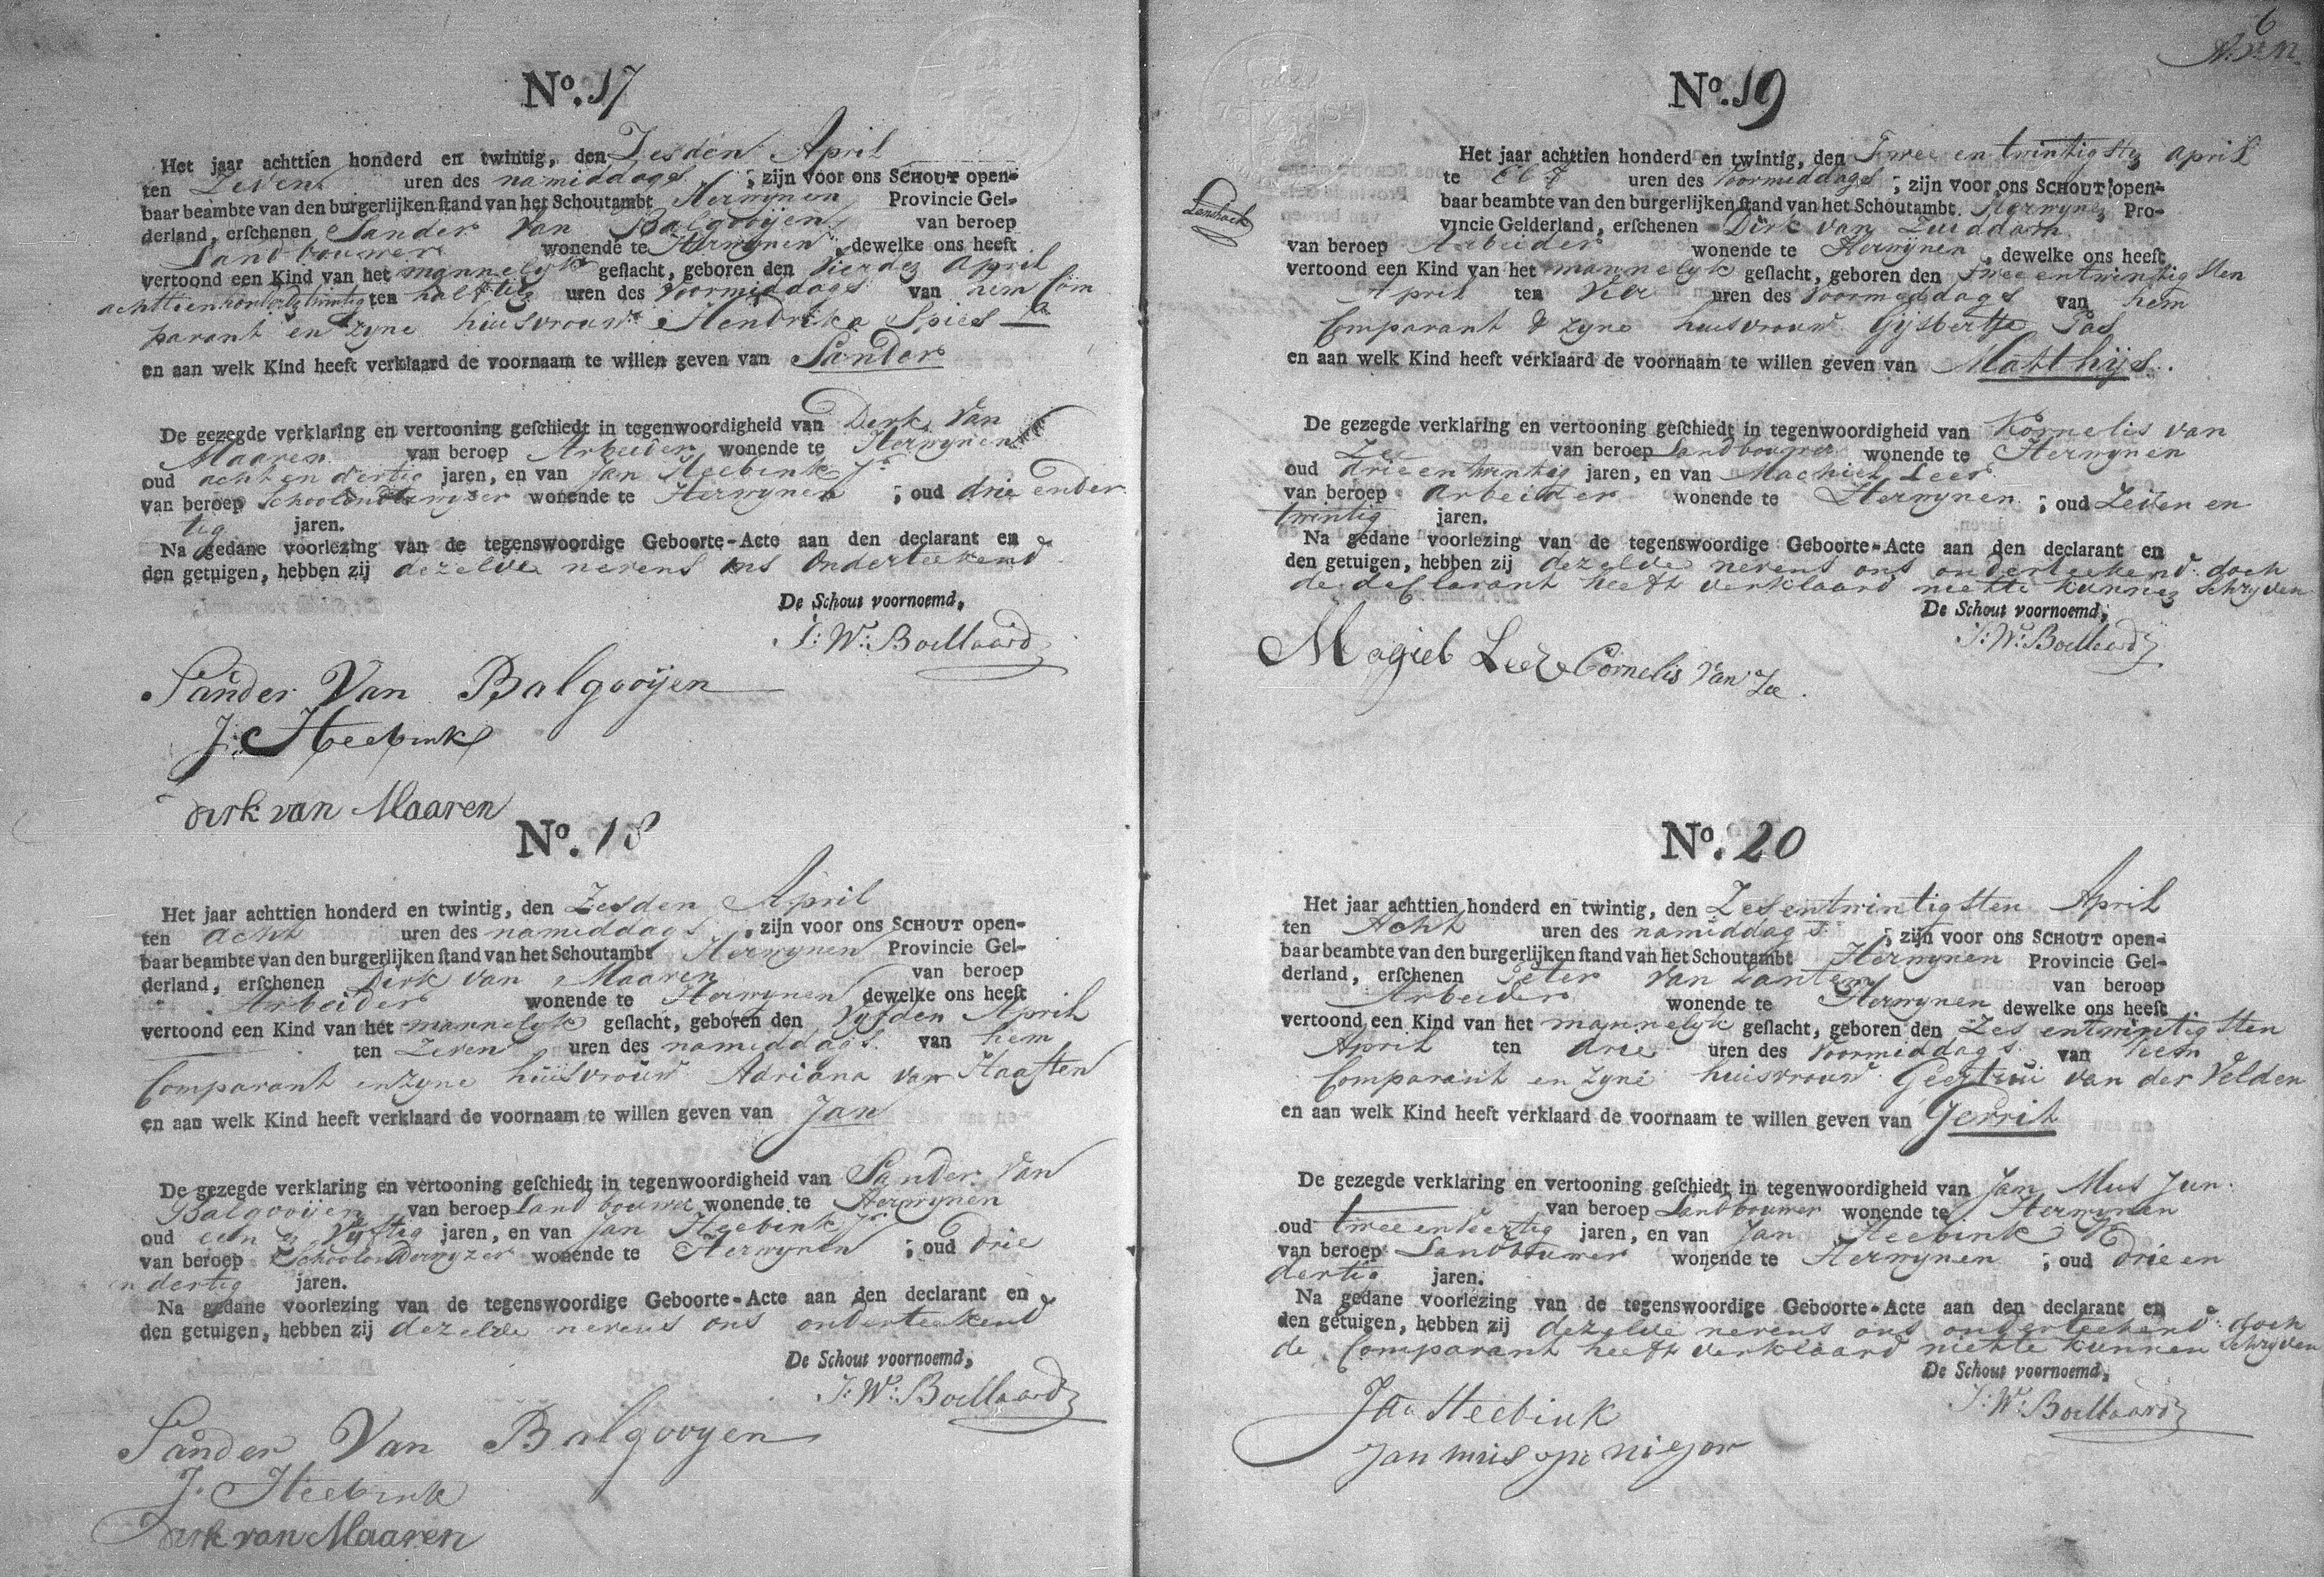 No. 17
Het jaar achttien honderd en twintig, den Zesden April
ten Zeven uren des namiddags, zijn voor ons SCHOUT open-
baar beambte van den burgerlijken stand van het Schoutambt Herwynen Provincie Gel-
derland, erschenen Sander Van Balgooijen van beroep
Landbouwer wonende te Herwynen, dewelke ons heeft
vertoond een Kind van het mannelyk geslacht, geboren den Vierden April
achttienhonderd twintig ten half tien uren des Voormiddags van hem Com
parant en zyne huisvrouw Hendrika Spies
en aan welk Kind heeft verklaard de voornaam te willen geven van Sander
De gezegde verklaring en vertooning geschiedt in tegenwoordigheid van Derk Van
Maaren van beroep Arbeider wonende te Herwynen
oud acht en dertig jaren, en van Jan Heebink Jr
van beroep Schoolonderwyzer wonende te Herwynen; oud drie en der
tig jaren.
Na gedane voorlezing van de tegenswoordige Geboorte-Acte aan den declarant en
den getuigen, hebben zij dezelve nevens ons Onderteekend
De Schout voornoemd,
J: W: Boellaard
Sander Van Balgooijen
J: Heebink
derk van Maaren
No. 18
Het jaar achttien honderd en twintig, den Zesden April
ten acht uren des namiddags, zijn voor ons SCHOUT open-
baar beambte van den burgerlijken stand van het Schoutambt Herwynen Provincie Gel-
derland, erschenen Derk van Maaren van beroep
Arbeider wonende te Herwynen dewelke ons heeft
vertoond een Kind van het mannelyk geslacht, geboren den Vyfden April
ten Zeven uren des namiddags van hem
Comparant en zyne huisvrouw Adriana van Haaften
en aan welk Kind heeft verklaard de voornaam te willen geven van Jan
De gezegde verklaring en vertooning geschiedt in tegenwoordigheid van Sander Van
Balgooijen van beroep Landbouwer wonende te Herwynen
oud een en Vyftig jaren, en van Jan Heebink Jr
van beroep Schoolonderwyzer wonende te Herwynen; oud drie
en dertig jaren.
Na gedane voorlezing van de tegenswoordige Geboorte-Acte aan den declarant en
den getuigen, hebben zij dezelve nevens ons onderteekend
De Schout voornoemd,
J: W: Boellaard
Sander Van Balgooyen
J. Heebink
Derk van Maaren
6
No. 19
Het jaar achttien honderd en twintig, den Twee en twintigsten april
te Elf uren des Voormiddags; zijn voor ons SCHOUT open-
baar beambte van den burgerlijken stand van het Schoutambt. Herwynen Pro-
vincie Gelderland, erschenen Dirk van Zuiddam
van beroep Arbeider wonende te Herwynen, dewelke ons heeft
vertoond een Kind van het mannelyk geslacht, geboren den twee en twintigsten
April ten Vier uren des Voormiddags van hem
Comparant & zyne huisvrouw Gijsbertje Pas
en aan welk Kind heeft verklaard de voornaam te willen geven van Matthijs.
De gezegde verklaring en vertooning geschiedt in tegenwoordigheid van Kornelis van
Zee van beroep Landbouwer wonende te Herwynen
oud drie en twintig jaren, en van Machiel Leer
van beroep arbeider wonende te Herwynen; oud Zeven en
twintig jaren.
Na gedane voorlezing van de tegenswoordige Geboorte-Acte aan den declarant en
den getuigen, hebben zij dezelve nevens ons onderteekend doch
de declarant heeft verklaard niet te kunnen schryven
De Schout voornoemd,
J: W: Boellaard
Magiel Leer Cornelis Van Zee.
No. 20
Het jaar achttien honderd en twintig, den Zesentwintigsten April
ten Acht uren des namiddags; zijn voor ons SCHOUT open-
baar beambte van den burgerlijken stand van het Schoutambt Herwynen Provincie Gel-
derland, erschenen Peter van Zanten van beroep
Arbeider wonende te Herwynen dewelke ons heeft
vertoond een Kind van het mannelyk geslacht, geboren den Zes entwintigsten
April ten drie uren des Voormiddags van hem
Comparant en zyne huisvrouw Geertrui van der Velden
en aan welk Kind heeft verklaard de voornaam te willen geven van Gerrit
De gezegde verklaring en vertooning geschiedt in tegenwoordigheid van Jan Mus Jun.
van beroep Landbouwer wonende te Herwynen
oud twee en Veertig jaren, en van Jan Heebink
van beroep Landbouwer wonende te Herwynen; oud drie en
dertig jaren.
Na gedane voorlezing van de tegenswoordige Geboorte-Acte aan den declarant en
den getuigen, hebben zij dezelve nevens ons onderteekend doch
de Comparant heeft verklaard niet te kunnen Schryven
De Schout voornoemd,
J: W: Boellaard
Jan Heebink